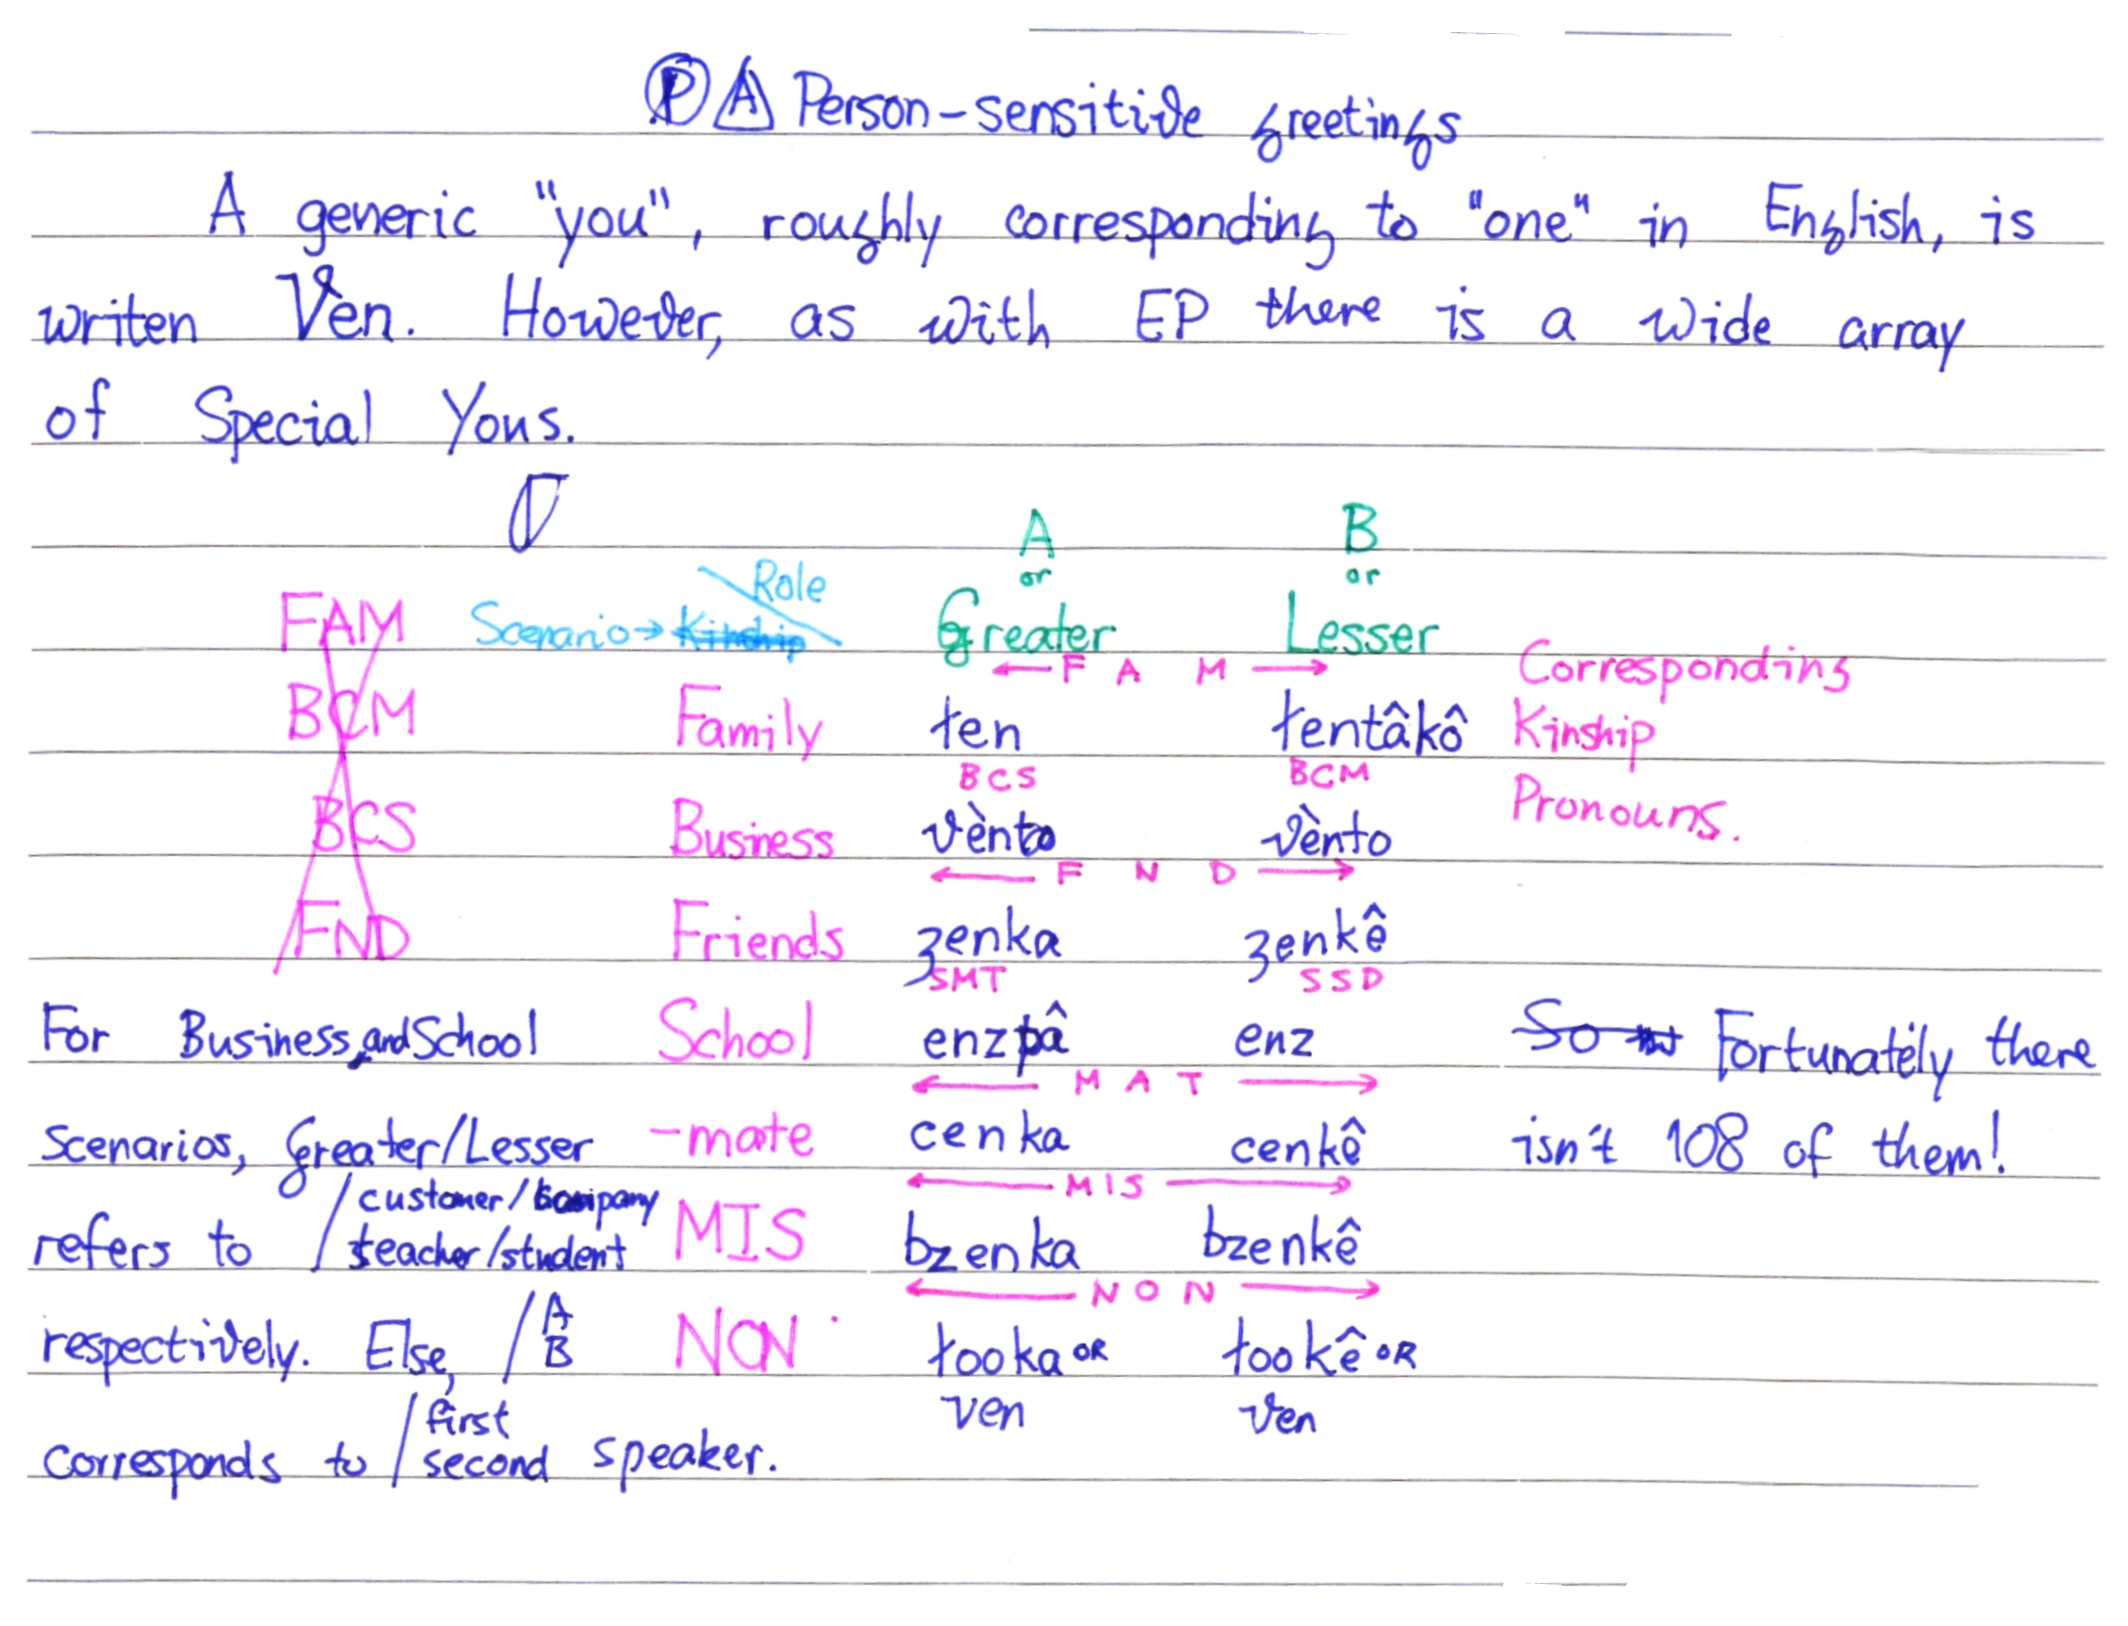 Ⓟ A Person-sensitive greetings
A generic "you", roughly corresponding to "one" in English, is
writen Ven. However, as with EP there is a wide array
of Special Yous.
A B
or or
Scenario → Kinship Role Greater Lesser
FAM
← F A M →
Corresponding
BCM Family ten tentâkô Kinship
BCS BCM
Pronouns.
BCS Business vènto vènto
← F N D →
FND Friends ʒenka ʒenkê
SMT SSD
For Business, and School School enzpâ enz So Fortunately there
← M A T →
scenarios, Greater/Lesser -mate cenka cenkê isn't 108 of them!
← MIS →
refers to / customer/company
teacher/student MIS bzenka bzenkê
← N O N →
respectively. Else, / A
B NON tooka OR tookê OR
ven ven
corresponds to / first
second speaker.